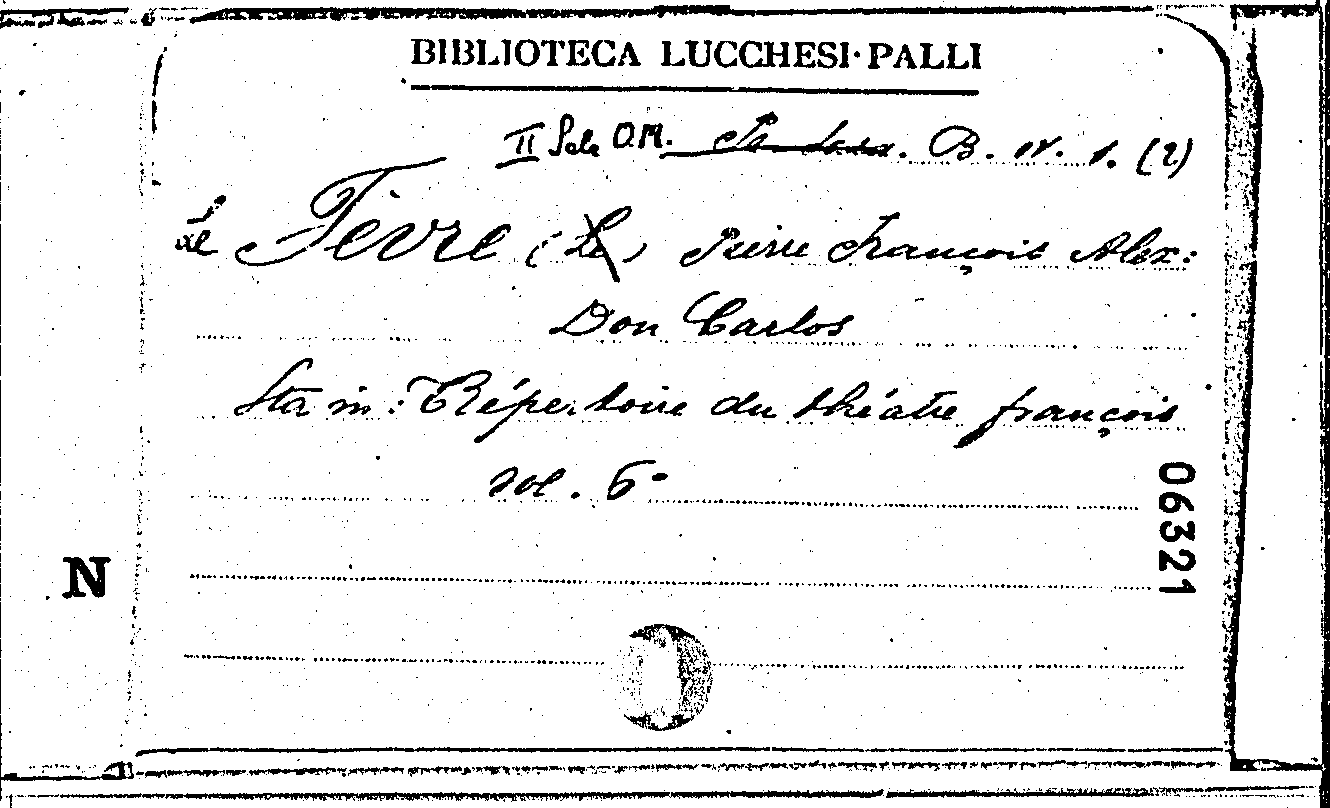 BIBLIOTECA LUCCHESI-PALLI
II Sala O.M. B. IV. 1. (2)
Le Fèvre (Le) Pierre François Alex:
Don Carlos
Sta in: Répertoire du théatre françois
vol. 6°
06321
N